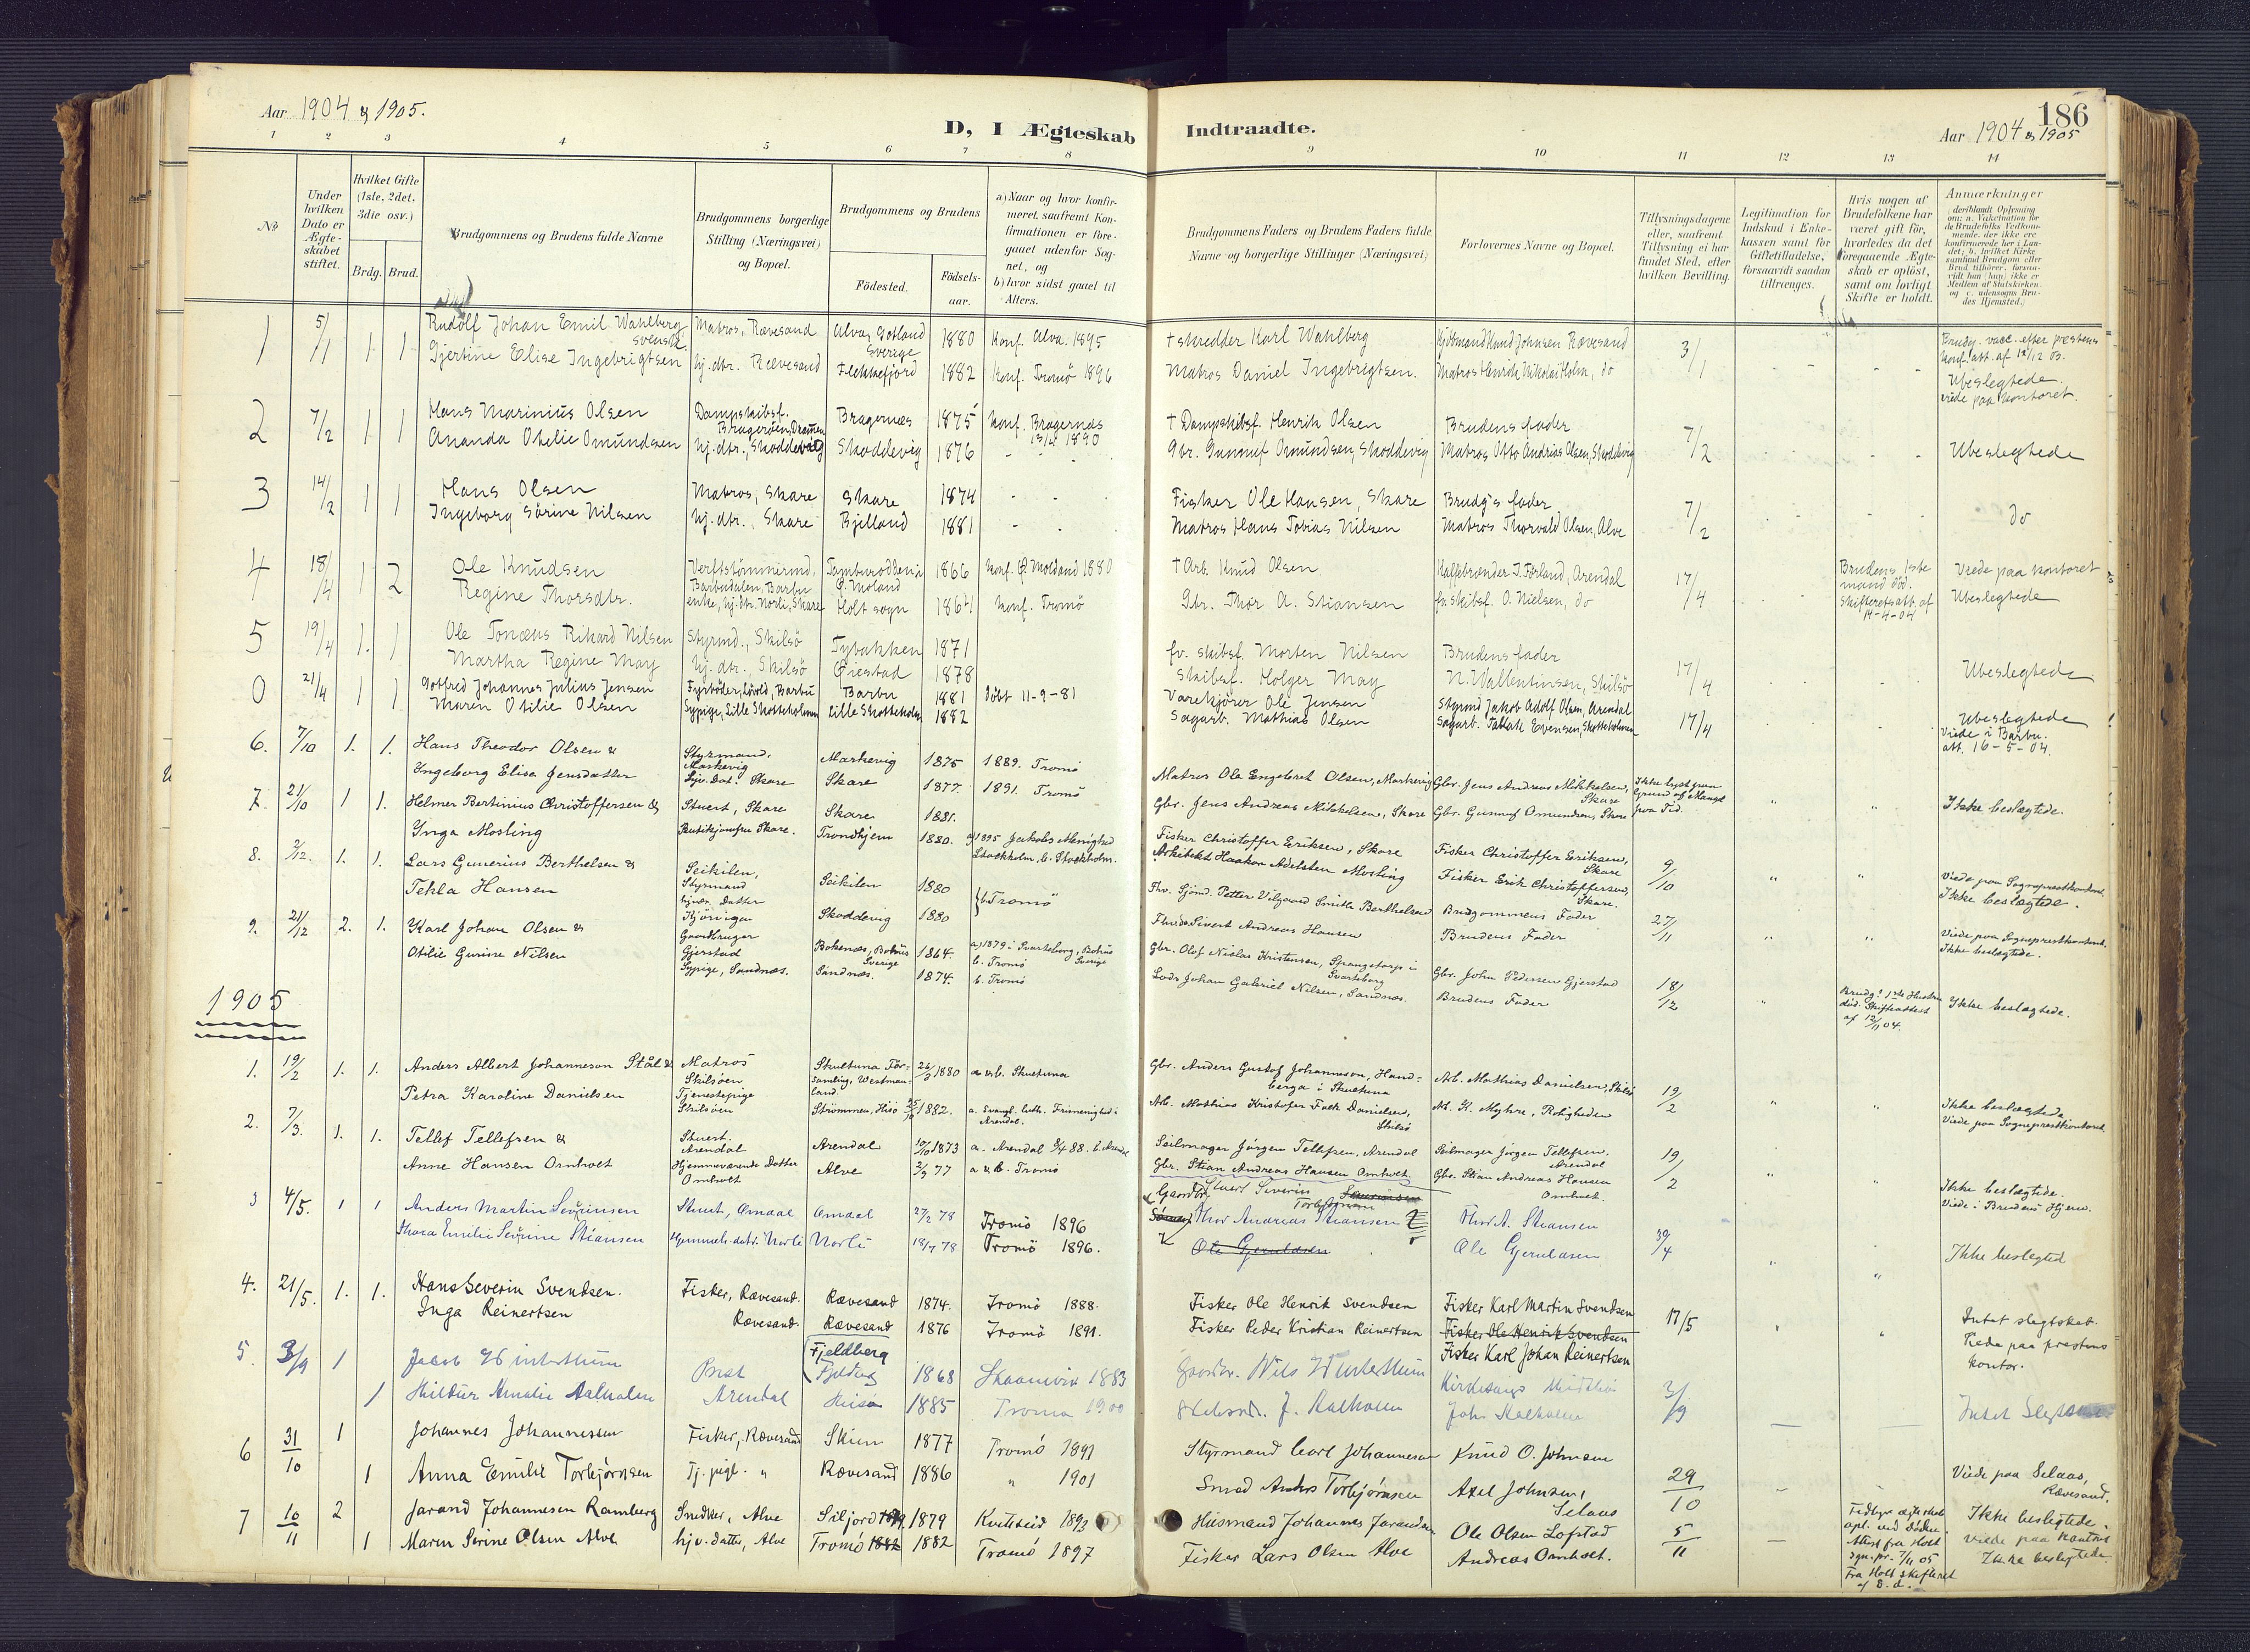 Aar 1904 & 1905.
D, I Ægteskab Indtraadte.
186
Aar 1904 & 1905
1 2 3 4 5 6 7 8 9 10 11 12 13 14
No
Under hvilken Dato er Ægteskabet stiftet.
Hvilket Gifte (1ste, 2det, 3die osv.)
Brdg. Brud.
Brudgommens og Brudens fulde Navne
Brudgommens borgerlige Stilling (Næringsvei) og Bopæl.
Brudgommens og Brudens
Fødested.
Fødsels-aar.
a) Naar og hvor konfirmeret, saafremt Konfirmationen er foregaaet udenfor Sognet, og
b) hvor sidst gaaet til Alters.
Brudgommens Faders og Brudens Faders fulde Navne og borgerlige Stillinger (Næringsvei)
Forlovernes Navne og Bopæl.
Tillysningsdagene eller, saafremt Tillysning ei har fundet Sted, efter hvilken Bevilling.
Legitimation for Indskud i Enkekassen samt for Giftetilladelse, forsaavidt saadan tiltrænges.
Hvis nogen af Brudefolkene har været gift før, hvorledes da det foregaaende Ægteskab er opløst, samt om lovligt Skifte er holdt.
Anmærkninger
1 5/1 1 1 Rudolf Johan Emil Wahlberg, svensk. Matros, Rævesand Alva, Gotland Sverige 1880 Konf. Alva 1895 † Skredder Karl Wahlberg Knud Johnsen Rævesand 3/1
Gjertine Elise Ingebrigtsen hj. dtr. Rævesand Flekkefjord 1882 Konf. Tromö 1896 Matros Daniel Ingebrigtsen. Matros Henrik Nikolai Holm, do
Brudg. vacc. efter prestens konf. att. af 12/12 03. Ubeslegtede. viede paa kontoret.
2 7/2 1 1 Hans Marinius Olsen Dampskibsf. Bragerøen, Dramen Bragernæs 1875 Konf. Bragernæs 1890 † Dampskibsf. Henrik Olsen Brudens fader 7/2
Ananda Otelie Omundsen hj. dtr., Skoddevig Skoddevig 1876 Gbr. Gunnuf Omundsen, Skoddevig Matros Otto Andrias Olsen, Skoddevig Ubeslegtede
3 14/2 1 1 Hans Olsen Matros, Skare Skare 1874 Fisker Ole Hansen, Skare Brudg's fader 7/2
Ingeborg Sörine Nilsen hj. dtr., Skare Bjelland 1881 Matros Hans Tobias Nilsen Matros Thorvald Olsen, Alve do
4 18/4 1 2 Ole Knudsen Verftstömmermd, Barbudalen, Barbu Ø. Moland 1866 Konf. Ø. Moland 1880 † Arb. Knud Olsen Kaffebrænder J. Förland, Arendal 17/4
Regine Thorsdtr. enke, hj. dtr. Norti, Skare Holt sogn 1864 Konf. Tromö Gbr. Thor A. Stiansen fv. skibsf. O. Nielsen, do
Brudens 1ste mand död. Skifteretsatt. af 14-4-04 Viede paa kontoret Ubeslegtede
5 19/4 1. 1 Ole Tonæus Rikard Nilsen Styrmd., Skilsö Tybakken 1871 fv. skibsf. Morten Nilsen Brudens fader 17/4
Martha Regine May hj. dtr. Skilsö Øiestad 1878 Skibsf. Holger May N. Vallentinsen, Skilsö Ubeslegtede
0 21/4 1 1 Gotfred Johannes Julius Jensen Fyrböder, Barbu Barbu 1881 döbt 11-9-81 Varekjörer Ole Jensen Styrmd Jakob Adolf Olsen, Arendal 17/4
Maren Otilie Olsen Sypige, Lille Skotteholmen Lille Skotteholm 1882 Sagarb. Mathias Olsen Sagarb. Evensen, Skotteholmen Ubeslegtede Viede i Barbu. att. 16-5-04.
6. 7/10 1. 1. Hans Theodor Olsen & Styrmand. Markevig Markevig 1875 1889. Tromö Matros Ole Engebret Olsen, Markevig Gbr. Jens Andreas Mikkelsen, Skare Ikke lyst paa Grund af Mangel paa Tid.
Ingeborg Elise Jensdatter Hjv. Dat. Skare Skare 1877. 1891. Tromö Gbr. Jens Andreas Mikkelsen, Skare Gbr. Gunnuf Omundsen, Skare Ikke beslægtede.
7. 21/10 1 1. Helmer Bertinius Christoffersen & Stuert, Skare Skare 1881. Fisker Christoffer Eriksen, Skare Fisker Christoffer Eriksen, Skare 9/10
Inga Mosling Butikjomfru Skare. Trondhjem 1880. a) 1895 Jakobs Menighed Stockholm, b. Stockholm. Arkitekt Haakon Adelsten Mosling Fisker Erik Christoffersen, Skare. Viede paa Sogneprestkontoret. Ikke beslægtede.
8. 2/12. 1. 1. Lars Gunerius Berthelsen & Seikilen, Styrmand Seikilen 1880 b. Tromö Fhv. Sjömd. Petter Vilgaard Smith Berthelsen Brudgommens Fader 27/11
Tekla Hansen hjvær. Datter Kjörvigen Skoddevig 1880 Sivert Andreas Hansen Brudens Fader Viede paa Sogneprestkontoret. Ikke beslægtede.
9. 21/12 2. 1. Karl Johan Olsen & Gaardbruger Gjerstad Bokenæs, Bohus Sverige 1864. a) 1879 i Svarteborg, Bohus Sverige b. Tromö Gbr. Olof Niclas Kristensen, Spangetorp i Svarteborg Gbr. John Pedersen Gjerstad 18/12
Otilie Gurine Nilsen Sypige, Sandnæs. Sandnæs. 1874. b. Tromö Lods Johan Gabriel Nilsen, Sandnæs. Brudens Fader
Brudg.s 1ste Hustru död. Skifteattest af 12/11 04. Ikke beslægtede.
1905
1. 19/2 1. 1. Anders Albert Johanneson Stål & Matros Skilsöen Skultuna Församling, Westmanland. 26/3 1880 a & b. Skultuna Gbr. Anders Gustaf Johanneson, Handberga i Skultuna Arb. Mathias Danielsen, Skilsö 19/2
Petra Karoline Danielsen Tjenestepige Skilsöen Strömmen, Hisö 1882. a. Evangl. luth. Frimenighed i Arendal. Arb. Mathias Kristofer Falk Danielsen, Skilsö Ad. K. Myhre, Roligheden Ikke beslægtede. Viede paa Sogneprestkontoret.
2. 7/3. 1. 1. Tellef Tellefsen & Stuert. Arendal Arendal 10/10 1873 a. Arendal 8/4 88. b. Arendal Seilmager Jörgen Tellefsen, Arendal Seilmager Jörgen Tellefsen, Arendal 19/2
Anne Hansen Omholt Hjemmeværende Datter Omholt Alve 2/9 77 a & b. Tromö Gbr. Stian Andreas Hansen Omholt Gbr. Stian Andreas Hansen Omholt. Ikke beslægtede. Viede i Brudens Hjem.
3 4/5. 1 1 Anders Martin Severinsen Stuert, Omdal Omdal 27/2 78 Tromö 1896 Stuert Severin Torbjørnsen Thor A. Stiansen 30/4
Thora Emilie Severine Stiansen Hjemmeh. datr. Norli Norli 18/7 78 Tromö 1896. Gaardbr. Thor Andreas Stiansen Ole Gjeruldsen Ole Gjeruldsen Ikke beslegted
4. 21/5. 1. 1. Hans Severin Svendsen. Fisker, Rævesand. Rævesand 1874. Tromö 1888. Fisker Ole Henrik Svendsen Fisker Karl Martin Svendsen 17/5
Inga Reinertsen Rævesand. Rævesand 1876 Tromö 1891. Fisker Peder Kristian Reinertsen Fisker Ole Henrik Svendsen Fisker Karl Johan Reinertsen Intet slegtskab. Viede paa prestens kontor.
5. 3/9 1 Jacob Winterthun Prest Fjeldberg 1868 Skaanevik 1883 Gaardbr. Nils Winterthun Kirkesanger 3/9
1 Hildur Amalie Aalholm Arendal Hisö 1885 Tromö 1900 Skibsrd. J. Aalholm John Aalholm Intet Slegtskab
6 31/10 1 Johannes Johannessen Fisker, Rævesand Skien 1877 Tromö 1891 Styrmand Carl Johannesen Knud O. Johnsen 29/10
1 Anna Emilie Torbjörnsen Tj. pige. " Rævesand 1886 " 1901 Smed Anders Torbjörnsen Axel Johnsen, Selaas Viede paa Selaas, Rævesand.
7 10/11 2 Jarand Johannesen Ramberg Snedker, Alve Siljord 1879 Kviteseid 1893 Husmand Johannes Jarandsen Ole Olsen Lofstad 5/11
1 Maren Serine Olsen Alve hjv. datter, Alve Tromö 1882 1882 Tromö 1897 Fisker Lars Olsen Alve Andreas Omholt.
Tidligere ægteskab opl. ved Döden. Attest fra Holt sgn. pr. 7/11 05 Fra Holt skifteret af D. d. Ikke beslegtede. Viede paa kontoret Ikke beslegtede.